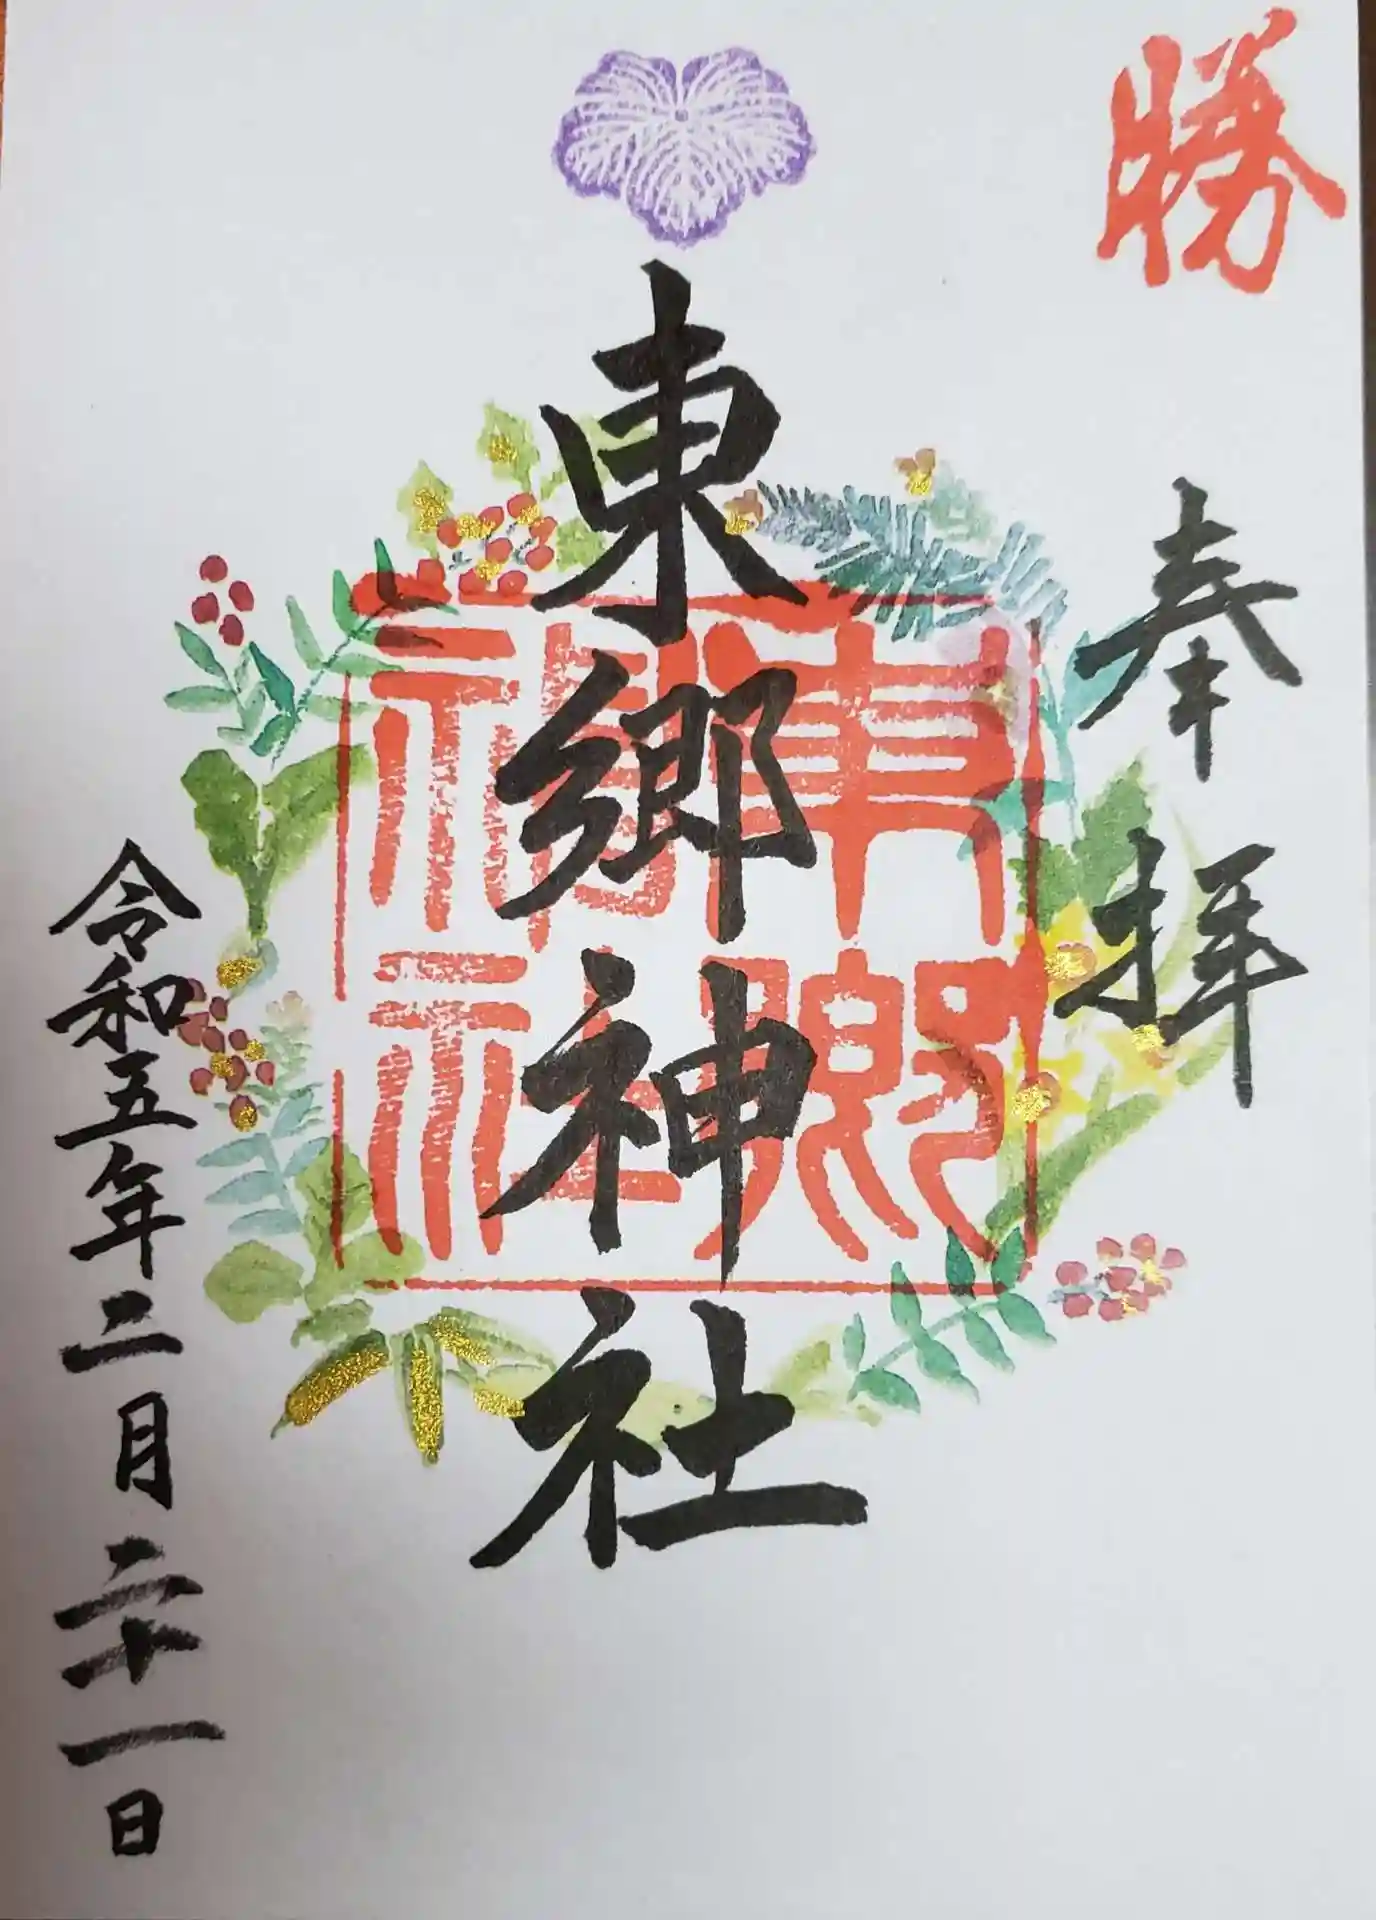 勝
奉拝
東郷神社
東郷神社
令和五年二月二十一日